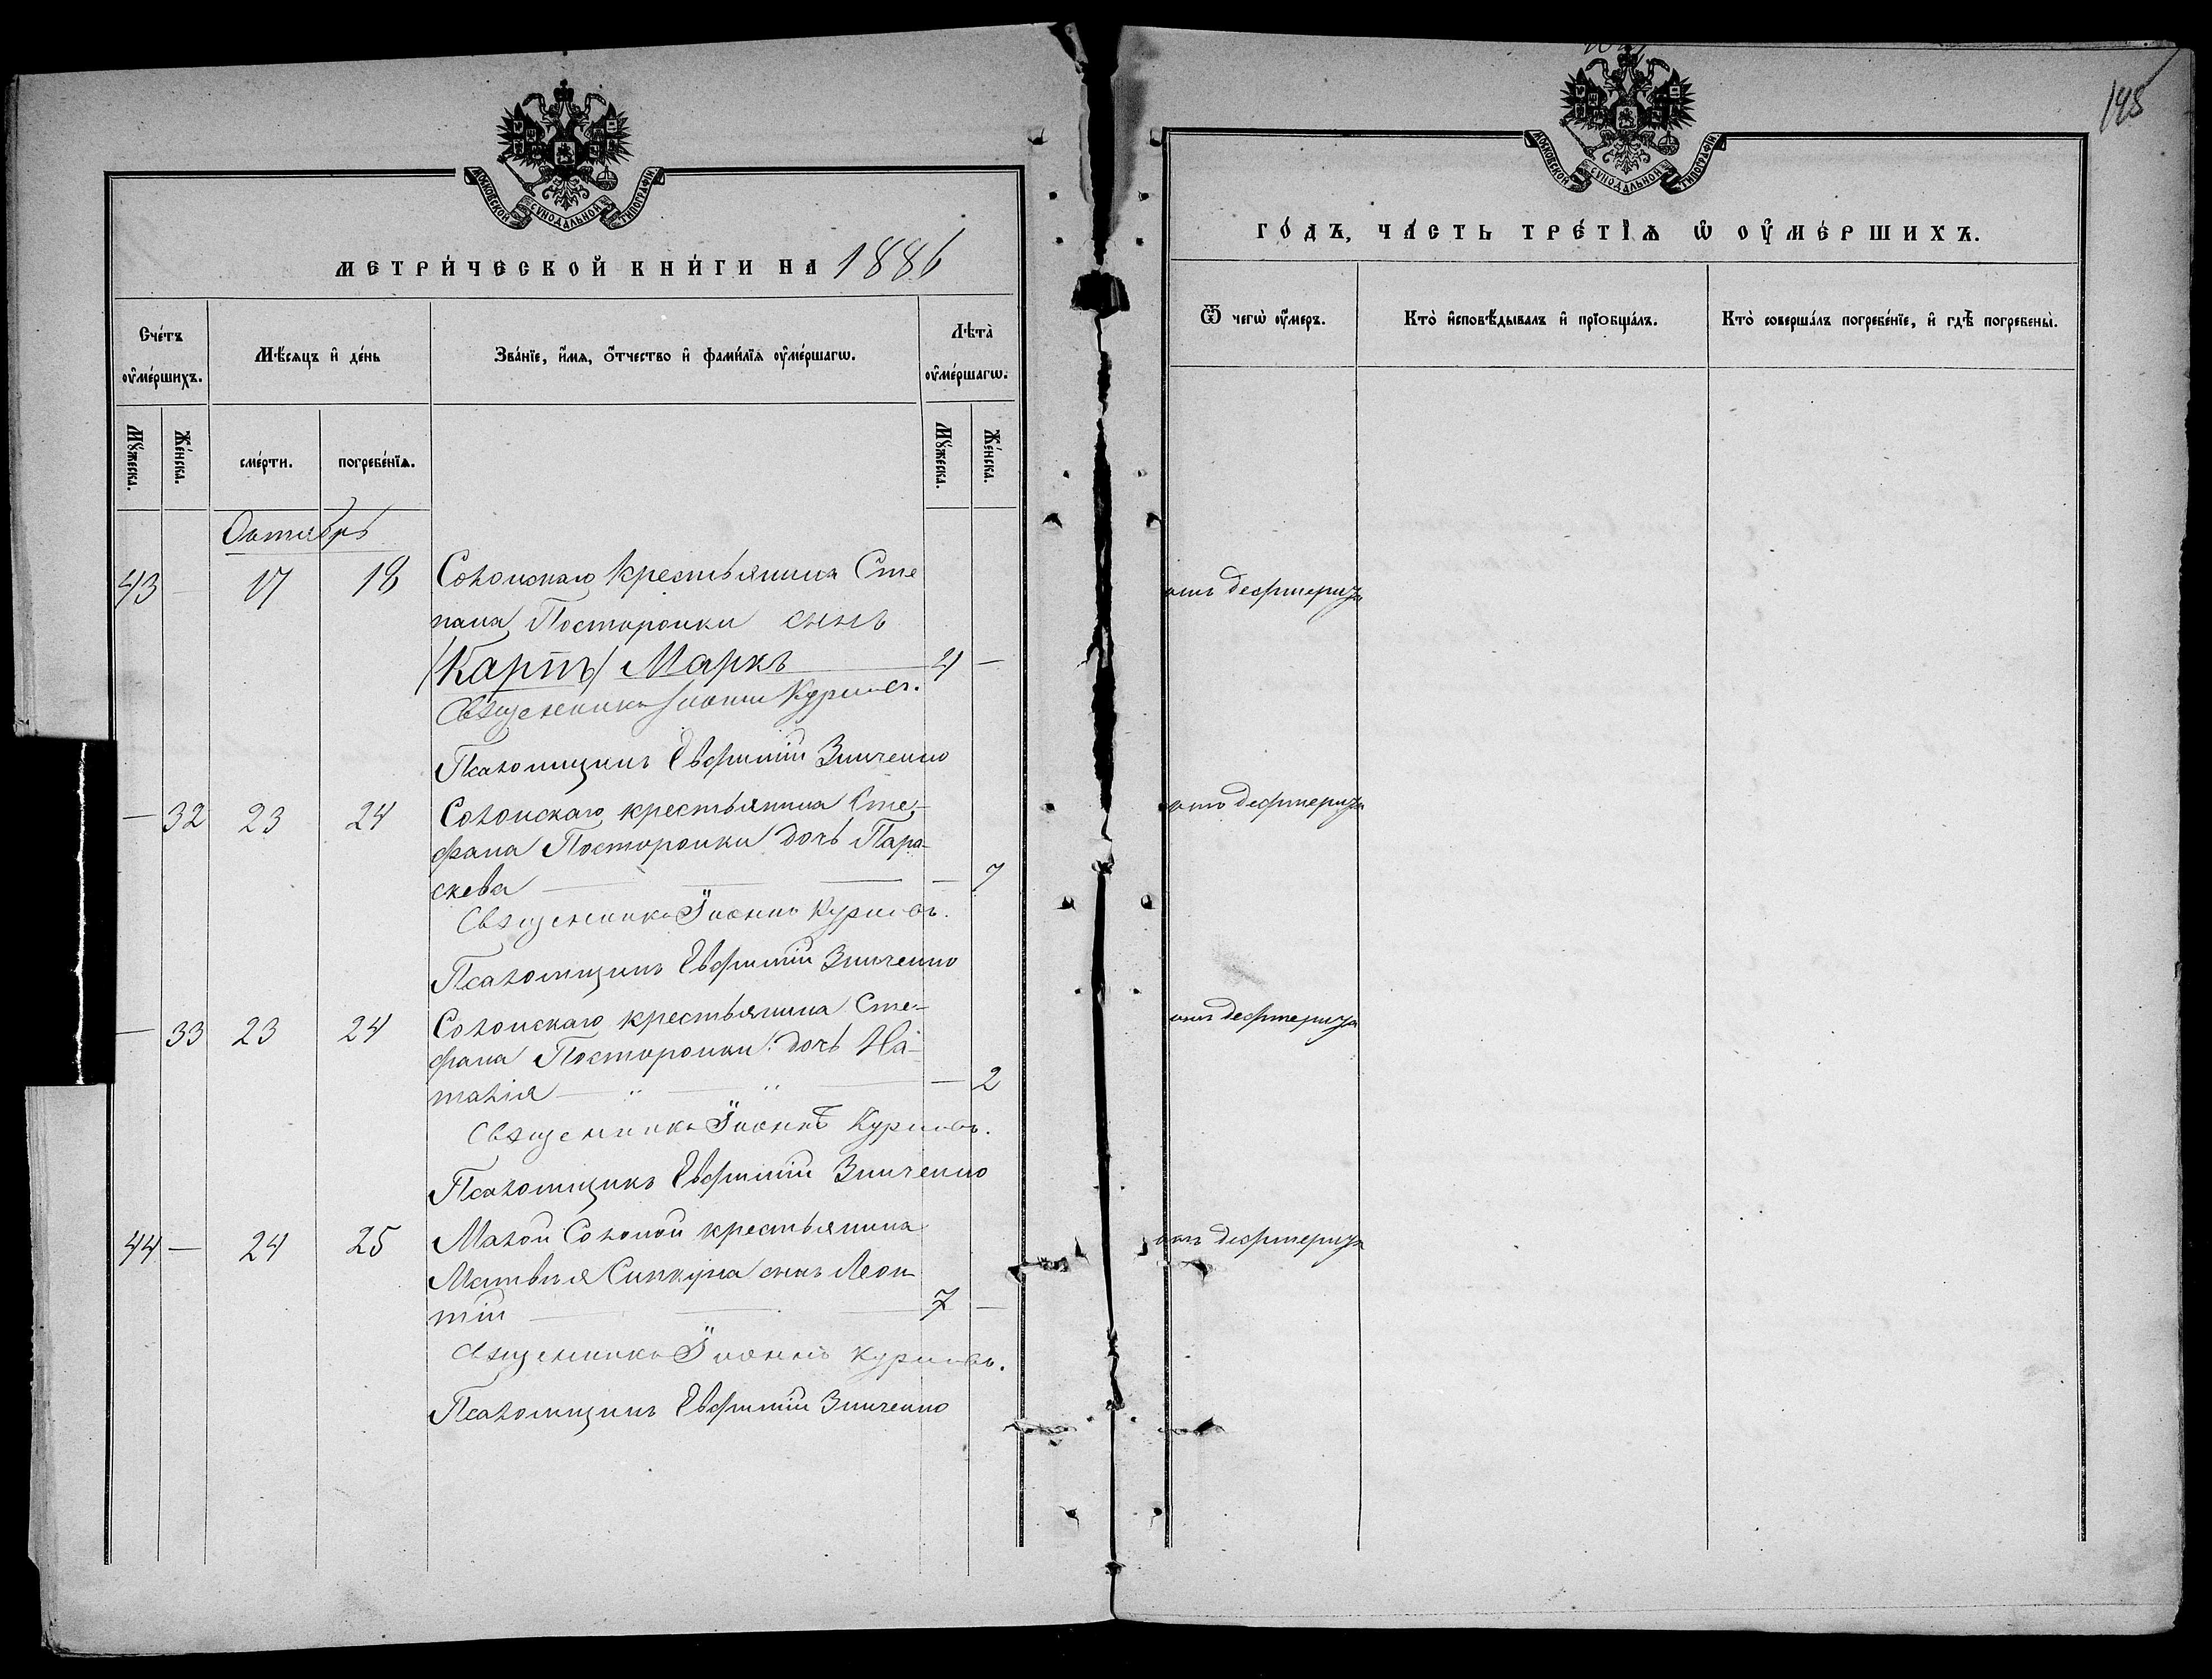 МОСКОВСКОЙ СѴНОДАЛЬНОЙ ТИПОГРАФІИ
МЕТРИ́ЧЕСКОЙ КНИ́ГИ НА 1886
Сче́тъ ᲂу҆ме́ршихъ.
Мѣ́сяцъ и҆ де́нь
Зва́нїе, и҆́мя, ѻ҆́тчество и҆ фами́лїя ᲂу҆ме́ршагѡ.
Лѣта̀ ᲂу҆ме́ршагѡ.
Мꙋ́жеска.
Же́нска.
сме́рти.
погребе́нїѧ.
Мꙋ́жеска.
Же́нска.
Октябрь
43 — 17 18 Солонскаго крестьянина Сте
пана Посторонки сынъ
(Карпъ) Маркъ 4 —
Священникъ Іоаннъ
Псаломщикъ Евфимій Зинченко
— 32 23 24 Солонскаго крестьянина Сте-
фана Посторонки дочь Пара-
скева — 7
Священникъ Іоаннъ
Псаломщикъ Евфимій Зинченко
— 33 23 24 Солонскаго крестьянина Сте-
фана Посторонки дочь На-
талія — 2
Священникъ Іоаннъ
Псаломщикъ Евфимій Зинченко
44 — 24 25 Малой Солоной крестьянина
Матвѣя сынъ Леон
тій 7 —
Священникъ Іоаннъ
Псаломщикъ Евфимій Зинченко
145
МОСКОВСКОЙ СѴНОДАЛЬНОЙ ТИПОГРАФІИ
ГО́ДЪ, ЧА́СТЬ ТРЕ́ТЇѦ Ѡ҆ ОУ҆МЕ́РШИХЪ.
Ѿ чегѡ̀ ᲂу҆́меръ.
Кто̀ и҆сповѣ́дывалъ и҆ прїѡбща́лъ.
Кто̀ соверша́лъ погребе́нїе, и҆ гдѣ̀ погребены̀.
отъ дефтерита
отъ дефтерита
отъ дефтерита
отъ дефтерита